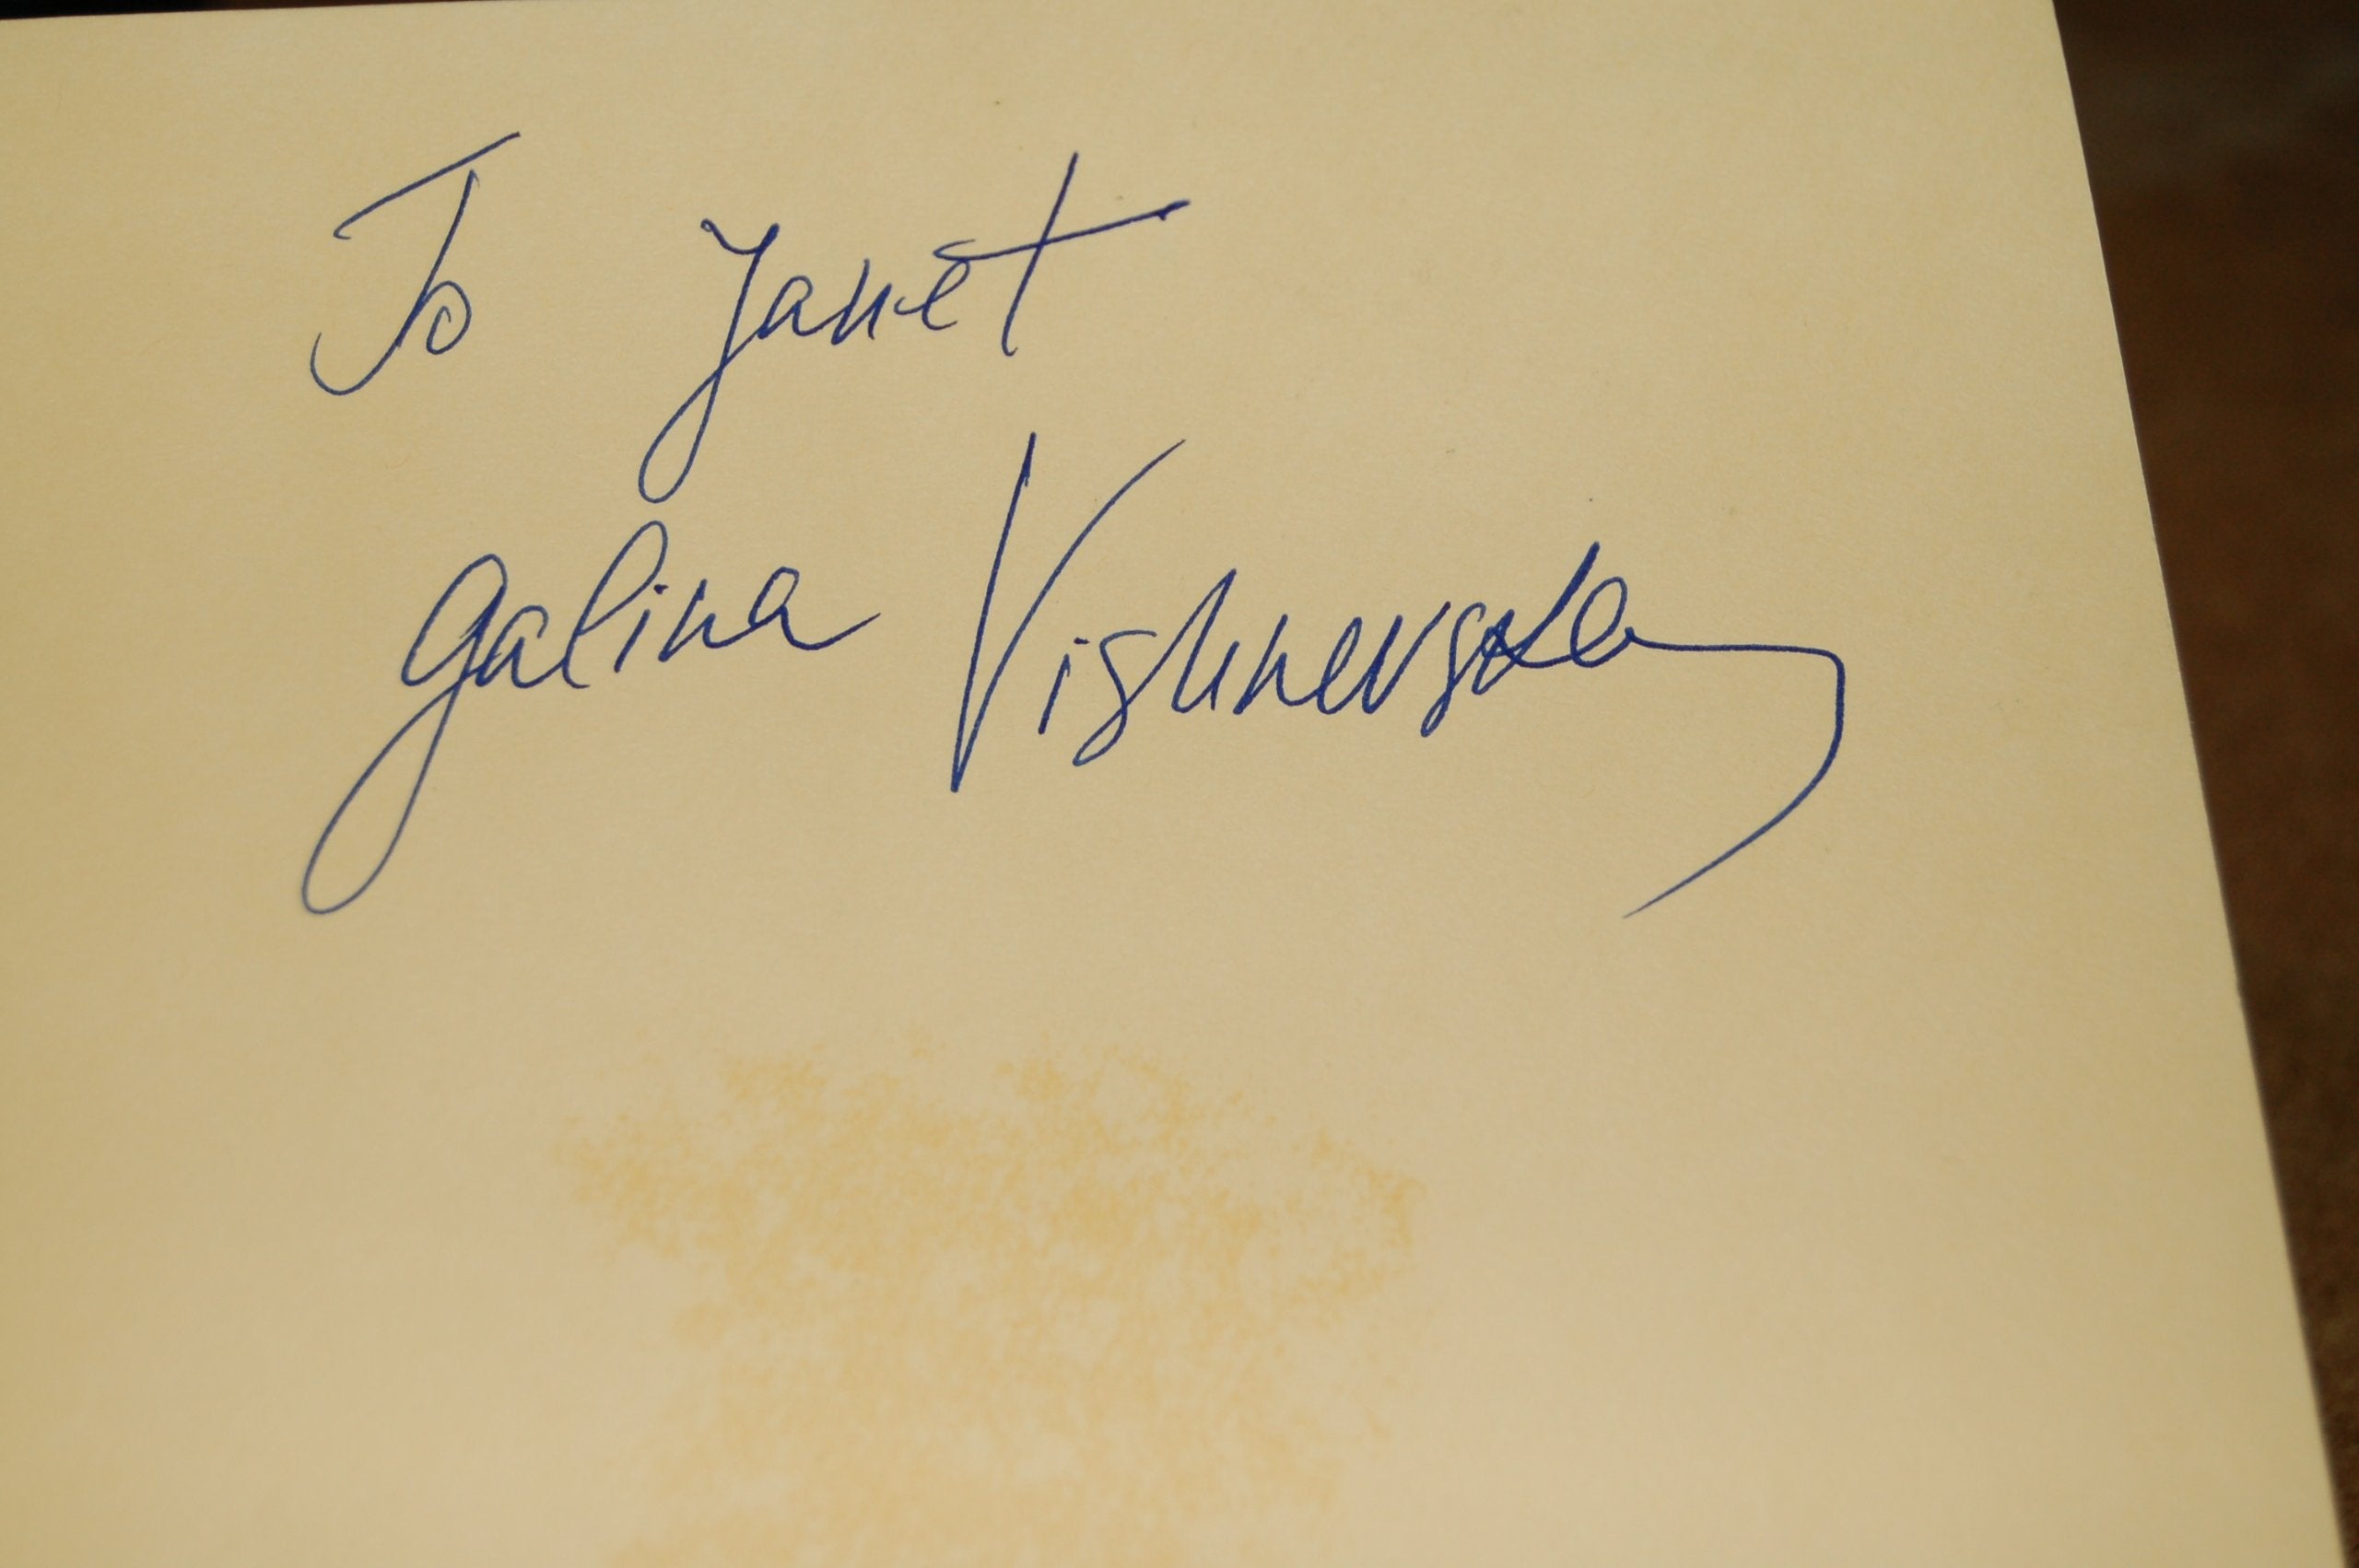 To Janet
Galina Vishnevskay